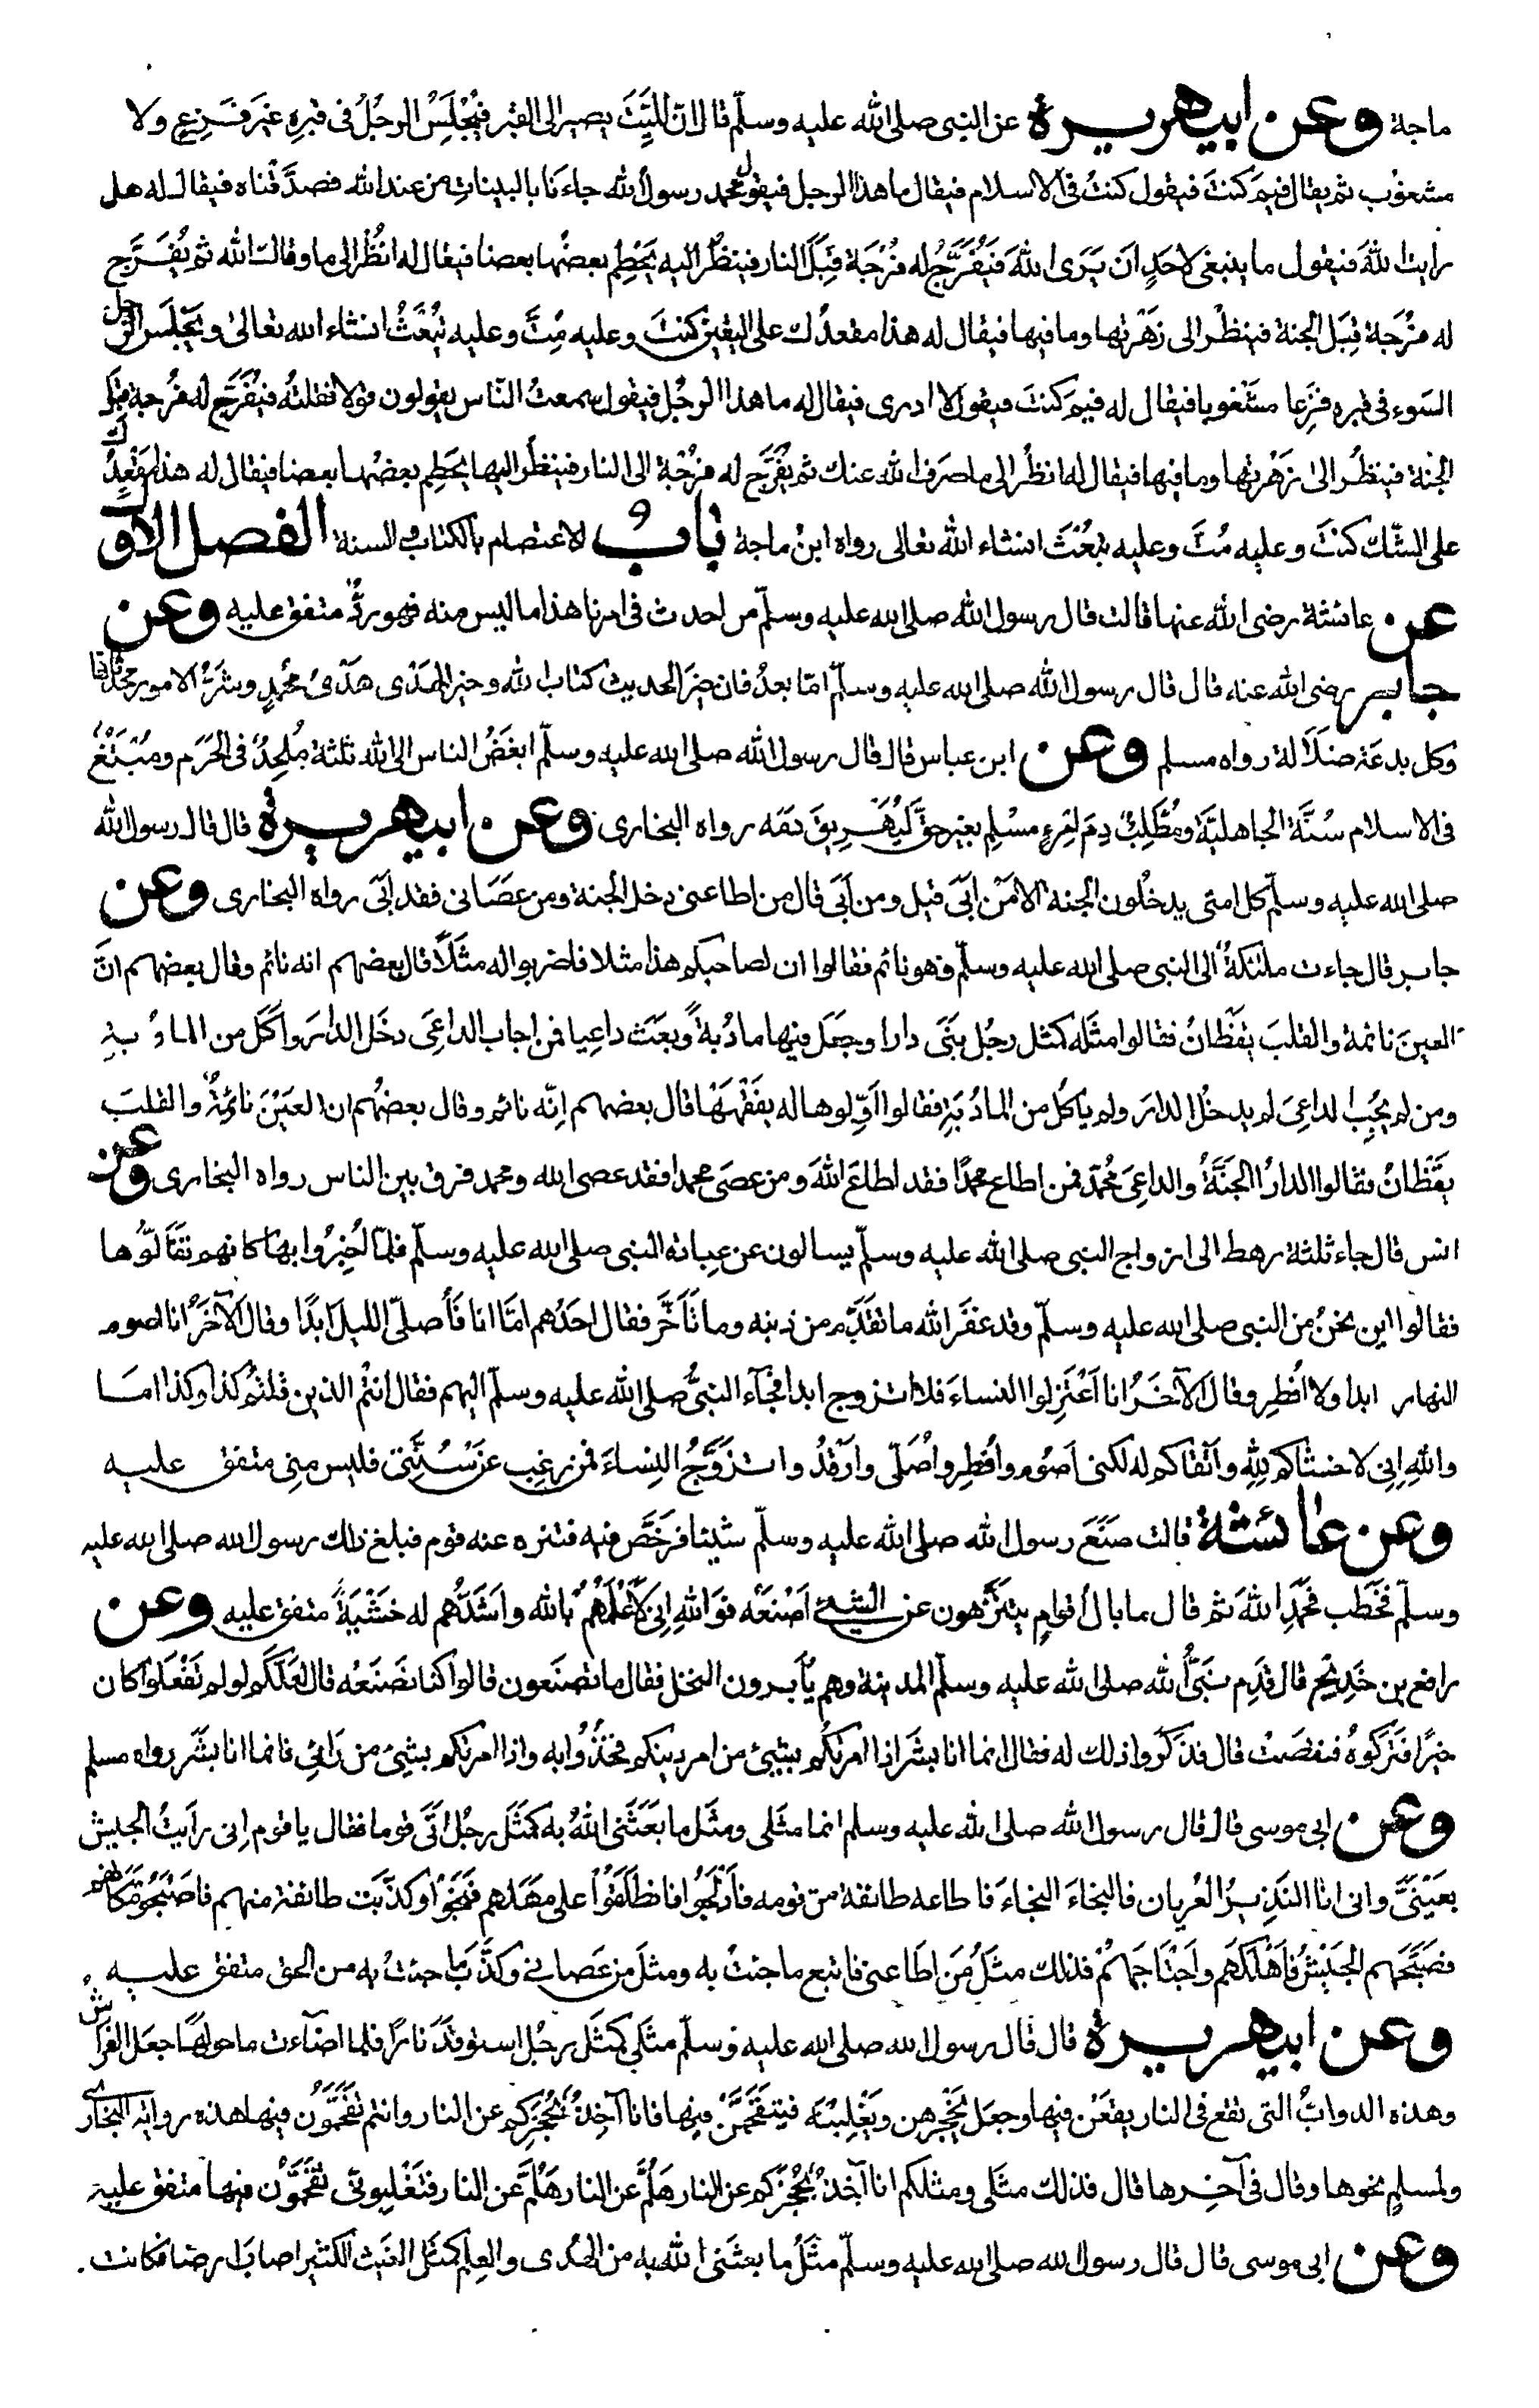 ماجة وعن ابي هريرة عن النبي صلى الله عليه وسلّم قال ان الميّت يصير الى القبر فيُجْلَسُ الرجُلُ فى قبرِه غيرَ فَزِعٍ ولا
مشغوب ثم يقال فيمَ كنتَ فيقول كنتُ فى الاسلام فيقال ما هذا الرجل فيقول محمد رسول الله جاءَنا بالبينات من عند الله فصدَّقناه فيقال له هل
رايت اللهَ فيقول ما ينبغى لاحَدٍ ان يَرَى اللهَ فَيُفَرَّجُ له فُرْجَة قِبَلَ النار فينظُرُ اليه يَحْطِم بعضُها بعضا فيقال له انظُر الى ما وقاك الله ثم يُفَرَّج
له فُرْجَة قِبَلَ الجنة فينظُر الى زَهْرتها وما فيها فيقال له هذا مقعدُك على اليقين كنتَ وعليه مُتَّ وعليه تُبْعَثُ انشاء الله تعالى ويُجْلَس الرجل
السَوء فى قبره فزِعا مشغوبا فيقال له فيم كنتَ فيقول لا ادرى فيقال له ما هذا الرجُل فيقول سمعتُ النّاس يقولون قولا فقلتُه فيُفَرَّج له فُرجة قِبَلَ
الجنة فينظُر الى زَهْرتها وما فيها فيقال له انظُر الى ما صرَف الله عنك ثم يُفَرَّج له فُرْجَة الى النار فينظُر اليها يَحطِم بعضُها بعضا فيقال له هذا مَقْعدُك
على الشّك كنتَ وعليه مُتَّ وعليه تُبعَثُ انشاء الله تعالى رواه ابن ماجة بابُ الاعتصام بالكتاب والسنة الفصل الاول
عن عائشة رضى الله عنها قالت قال رسول الله صلى الله عليه وسلّم من احدث فى امرنا هذا ما ليس منه فهو ردٌّ متفق عليه وعن
جابر رضى الله عنه قال قال رسول الله صلى الله عليه وسلّم امّا بعدُ فان خيرَ الحديث كتاب الله وخير الهَدْى هَدْىُ محمدٍ وشرَّ الامور محدثاتها
وكل بدعَة ضلَالة رواه مسلم وعن ابن عباس قال قال رسول الله صلى الله عليه وسلّم ابغَضُ الناس الى الله ثلثة مُلحِدٌ فى الحَرَم ومُبْتَغٍ
فى الاسلام سُنَّة الجاهليّة ومُطَّلِبُ دِمَ امْرِءٍ مسْلِم بغير حقّ لِيُهَرِيقَ دمَه رواه البخارى وعن ابي هريرة قال قال رسول الله
صلى الله عليه وسلّم كل امتى يدخُلون الجنة الا مَنْ اَبَى قيل ومن اَبَى قال من اطاعنى دخل الجنة ومن عصَانى فقد اَبَى رواه البخارى وعن
جابر قال جاءت ملئكةٌ الى النبى صلى الله عليه وسلّم وهو نائم فقالوا ان لصاحبكم هذا مثلا فاضربوا له مثَلًا قال بعضهم انه نائم وقال بعضهم انّ
العينَ نائمة والقلبَ يقظانُ فقالوا مثَله كمثل رجُل بَنَى دارا وجعَل فيها مادُبةً وبعَث داعيا فمن اجاب الداعِىَ دخَل الدارَ واكَل من المادُبة
ومن لم يُجِب الداعِىَ لم يدخُل الدارَ ولم ياكُل من المادُبَةِ فقالوا اَوِّلوها له يفقَهْهَا قال بعضهم اِنّه نائم وقال بعضُهم ان العَيْنَ نائِمةٌ والقلبَ
يقظَانُ فقالوا الدارُ الجَنَّةُ والداعِىَ مُحَمّد فمن اطاع محمدًا فقد اطاعَ اللهَ ومن عصَى محمدا فقد عصى الله ومحمد فرق بين الناس رواه البخارى وعن
انس قال جاء ثلثة رهط الى ازواج النبى صلى الله عليه وسلّم يسالون عن عبادة النبى صلى الله عليه وسلّم فلمّا اُخبِرُوا بها كانهم تقَالُّوها
فقالوا اين نحنُ من النبى صلى الله عليه وسلّم وقد غفَر الله ما تقدَّم من ذنبه وما تأخَّر فقال احدُهم امّا انا فَاُصلّى الليلَ ابدًا وقال الآخَرُ انا اصوم
النهار ابدا ولا اُفطِر وقال الآخَرُ انا اَعْتَزِل النساءَ فلا اتزوج ابدا فجاء النبىُّ صلى الله عليه وسلّم اليهم فقال انتُم الذين قلتُم كذا وكذا امَا
والله اِنِى لاخشاكم لِلّٰهِ واَتْقاكم له لكنى اَصُوم واُفطِر واُصَلّى واَرْقُدُ واتزَوَّجُ النِساءَ فمن رغِب عن سُنَّتِى فليس منِى متفق عليه
وعن عائشة قالت صنَعَ رسول الله صلى الله عليه وسلّم شيئا فرَخَّص فيه فتنزه عنه قوم فبلغ ذلك رسول الله صلى الله عليه
وسلّم فخطَب فحَمِدَ اللهَ ثم قال ما بالُ اقوامٍ يتنَزَّهون عن الشيئ اَصْنعُه فوَاللهِ اِنِى لَاَعْلَمُهُمْ بالله واَشَدُّهُم له خشْيَةً متفق عليه وعن
رافع بن خَدِيج قال قدِم نَبىُّ الله صلى الله عليه وسلّم المدينة وهم يُأبرون النخل فقال ما تصنَعون قالوا كنا نصْنَعُه قال لعَلَّكُم لو لم تَفْعَلوا كان
خيرًا فتَرَكوهُ فنقصَتْ قال فذكَروا ذلك له فقال انما انا بشَر اذا امرتكُم بشيئ من امر دينكم فخُذُوا به واذا امرتكم بشيئ من رَائِ فانما انا بشَر رواه مسلم
وعن ابى موسى قال قال رسول الله صلى الله عليه وسلم انما مثَلى ومثَل ما بعَثَنى اللهُ به كمَثَل رجُل اَتَى قوما فقال يا قوم اِنى رأيتُ الجيش
بعَيْنَىَّ وانى انا النذيرُ العُريان فالنجاءَ النجاءَ فاطاعه طائفة من قومه فاَدْلَجُوا فانطلَقُوْا على مَهَلهم فنَجَوْا وكذّبت طائفة منهم فاصْبَحُوا مكانهم
فصَبَّحَهم الجَيْشُ فاَهْلَكَهم واجْتاحَهُمْ فذلك مثَلُ مَن اطَاعنى فاتبع ما جئتُ به ومثل من عَصانى وكذّبَ بما جئتُ به من الحق متفق عليه
وعن ابي هريرة قال قال رسول الله صلى الله عليه وسلّم مثَلى كمَثَل رجُل استوقَدَ نارًا فلما اضاءت ما حولها جعَل الفَراش
وهذه الدوابُّ التى تقع فى النار يقَعْن فيها وجعَل يَحْجُزهن ويَغْلِبْنَه فيتقَحَّمْنَ فيها فانا آخِذٌ بحُجَزكم عن النار وانتم تقَحَّمُون فيها هذه رواية البخارى
ولمسلمٍ نحوها وقال فى آخِرها قال فذلك مثَلى ومثلكم انا آخذ بحُجَزكم عن النار هَلُمَّ عن النار هَلُمَّ عن النار فتَغْلِبونى تقَحَّمُون فيها متفق عليه
وعن ابى موسى قال قال رسول الله صلى الله عليه وسلّم مثَلُ ما بعثَنى الله به من الهُدى والعِلم كمثَل الغَيث الكثير اصابَ ارضا فكانت